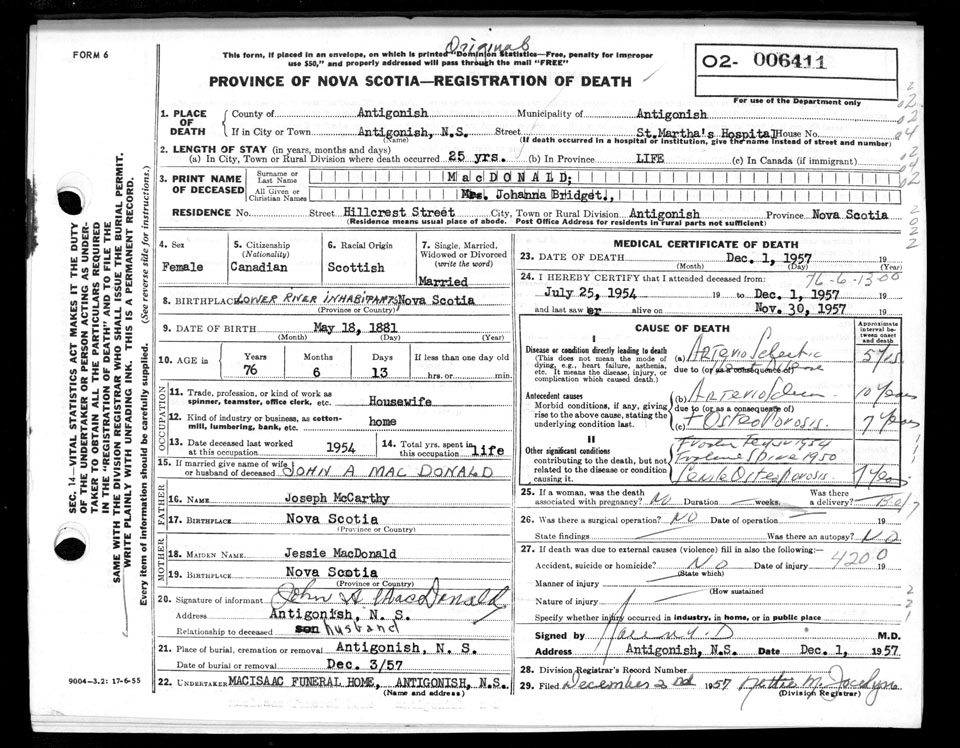 FORM 6
Original
This form, if placed in an envelope, on which is printed "Dominion Statistics—Free, penalty for improper
use $50," and properly addressed will pass through the mail "FREE"
PROVINCE OF NOVA SCOTIA—REGISTRATION OF DEATH
02- 006411
For use of the Department only
1. PLACE OF DEATH
County of Antigonish Municipality of Antigonish
If in City or Town Antigonish, N.S. Street St.Martha's Hospital House No.
(Name) (If death occurred in a hospital or institution, give the name instead of street and number)
2. LENGTH OF STAY (in years, months and days)
(a) In City, Town or Rural Division where death occurred 25 yrs. (b) In Province LIFE (c) In Canada (if immigrant)
3. PRINT NAME OF DECEASED
Surname or Last Name MacDONALD;
All Given or Christian Names Mrs. Johanna Bridget.,
RESIDENCE No. Street Hillcrest Street City, Town or Rural Division Antigonish Province Nova Scotia
(Residence means usual place of abode. Post Office Address for residents in rural parts not sufficient)
4. Sex
Female
5. Citizenship
(Nationality)
Canadian
6. Racial Origin
Scottish
7. Single, Married, Widowed or Divorced
(write the word)
Married
8. BIRTHPLACE LOWER RIVER INHABITANTS Nova Scotia
(Province or Country)
9. DATE OF BIRTH May 18, 1881
(Month) (Day) (Year)
10. AGE in
Years Months Days If less than one day old
76 6 13 hrs. or min.
OCCUPATION
11. Trade, profession, or kind of work as
spinner, teamster, office clerk, etc. Housewife
12. Kind of industry or business, as cotton-
mill, lumbering, bank, etc. home
13. Date deceased last worked
at this occupation 1954
14. Total yrs. spent in
this occupation life
15. If married give name of wife
or husband of deceased JOHN A MAC DONALD
FATHER
16. NAME Joseph McCarthy
17. BIRTHPLACE Nova Scotia
(Province or Country)
MOTHER
18. MAIDEN NAME Jessie MacDonald
19. BIRTHPLACE Nova Scotia
(Province or Country)
20. Signature of informant John A MacDonald
Address Antigonish, N. S.
Relationship to deceased son husband
21. Place of burial, cremation or removal Antigonish, N. S.
Date of burial or removal Dec. 3/57
22. UNDERTAKER MACISAAC FUNERAL HOME, ANTIGONISH, N.S.
(Name and address)
9004-3.2: 17-6-55
MEDICAL CERTIFICATE OF DEATH
23. DATE OF DEATH Dec. 1, 1957 19
(Month) (Day) (Year)
24. I HEREBY CERTIFY that I attended deceased from: 76-6-13 00
July 25, 1954 19 to Dec. 1, 1957 19
and last saw er alive on Nov. 30, 1957 19
CAUSE OF DEATH
Approximate interval between onset and death
I
Disease or condition directly leading to death
(This does not mean the mode of
dying, e.g., heart failure, asthenia,
etc. It means the disease, injury, or
complication which caused death.)
(a)
due to (or as a consequence of)
5 yrs
Antecedent causes
Morbid conditions, if any, giving
rise to the above cause, stating the
underlying condition last.
(b)
due to (or as a consequence of)
10 Years
(c) + Osteoporosis.
7 Years
II
Other significant conditions
contributing to the death, but not
related to the disease or condition
causing it.
1954
Spine 1950
Senile Osteoporosis
25. If a woman, was the death
associated with pregnancy? NO Duration weeks. Was there
a delivery?
26. Was there a surgical operation? NO Date of operation 19
State findings Was there an autopsy? NO
27. If death was due to external causes (violence) fill in also the following:—
Accident, suicide or homicide? NO Date of injury 19
(State which)
4200
Manner of injury
(How sustained
Nature of injury
Specify whether injury occurred in industry, in home, or in public place
Signed by M.D.
Address Antigonish, N.S. Date Dec. 1, 1957
28. Division Registrar's Record Number
29. Filed December 2nd 1957
(Division Registrar)
SEC. 14—VITAL STATISTICS ACT MAKES IT THE DUTY
OF THE UNDERTAKER OR PERSON ACTING AS UNDER-
TAKER TO OBTAIN ALL THE PARTICULARS REQUIRED
IN THE "REGISTRATION OF DEATH" AND TO FILE THE
SAME WITH THE DIVISION REGISTRAR WHO SHALL ISSUE THE BURIAL PERMIT.
WRITE PLAINLY WITH UNFADING INK. THIS IS A PERMANENT RECORD.
Every item of information should be carefully supplied. (See reverse side for instructions.)